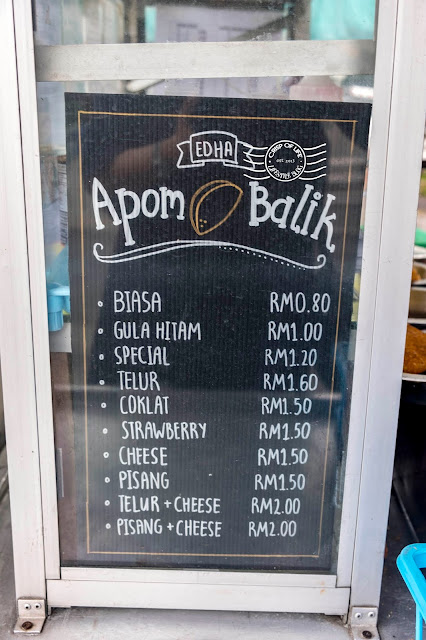 EDHA
CRISP OF LIFE
Apom Balik
• BIASA RM0.80
• GULA HITAM RM1.00
• SPECIAL RM1.20
• TELUR RM1.60
• COKLAT RM1.50
• STRAWBERRY RM1.50
• CHEESE RM1.50
• PISANG RM1.50
• TELUR + CHEESE RM2.00
• PISANG + CHEESE RM2.00